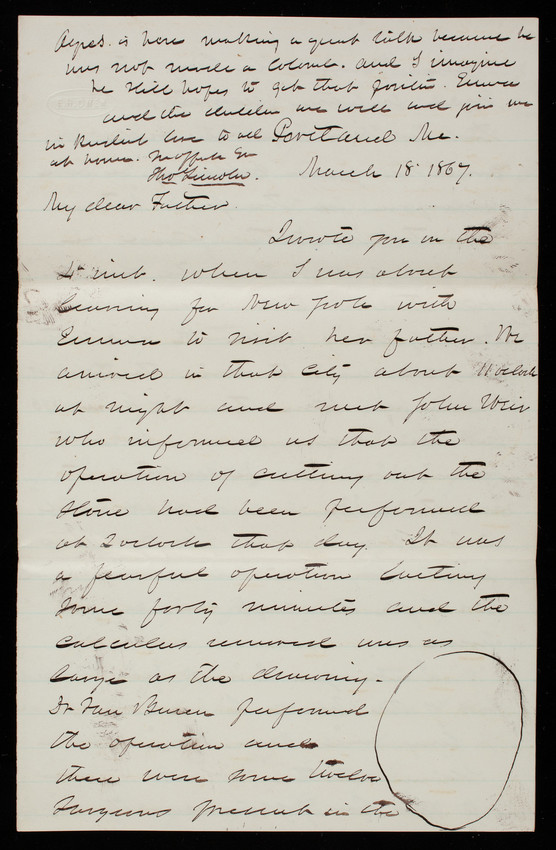 is here making a great talk because he
was not made a Colonel. and I imagine
he still hopes to get that position. Emma
and the children are well and join me
in kindest love to all
at home.
Thos Lincoln.
Portland Me.
March 18th 1867.
My dear Father
I wrote you on the
4th inst. when I was about
leaving for New York with
Emma to visit her father. We
arrived in that city about 11 oclock
at night and met John Weir
who informed us that the
operation of cutting out the
stone had been performed
at 2 oclock that day. It was
a fearful operation lasting
some forty minutes and the
calculus removed was as
large as the drawing.
Dr Van Buren performed
the operation and
there were some twelve
Surgeons present in the